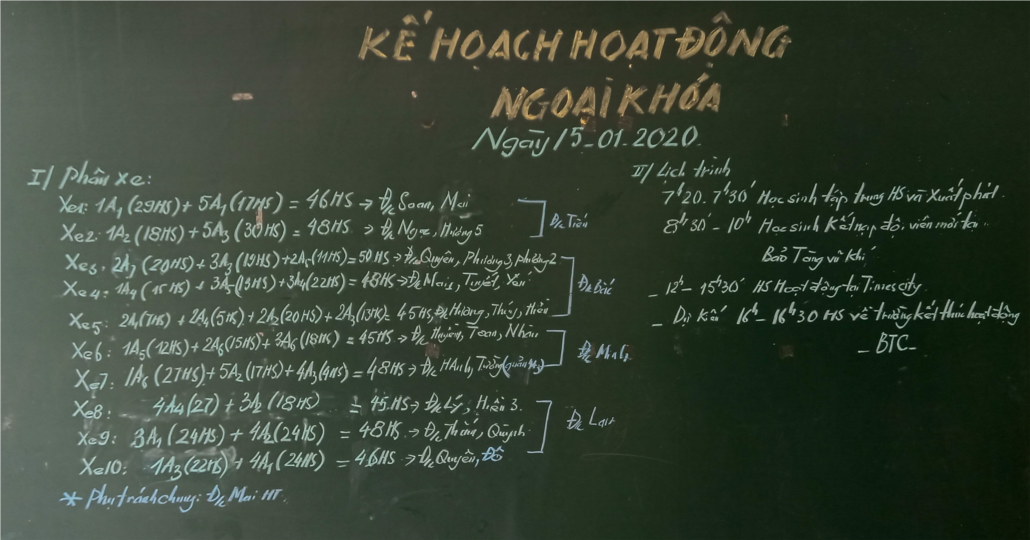 KẾ HOẠCH HOẠT ĐỘNG
NGOẠI KHÓA
Ngày 15-01-2020.
I/ Phân xe:
Xe1: 1A1 (29HS) + 5A1 (17HS) = 46HS → Đ/c Soan, Mai
Xe2: 1A2 (18HS) + 5A3 (30HS) = 48HS → Đ/c Ngọc, Hương 5
Đ/c Tiến
Xe3: 2A3 (20HS) + 3A3 (19HS) + 2A5 (11HS) = 50HS → Đ/c Quyên, Phương 3, Phương 2
Xe4: 1A4 (15HS) + 3A5 (13HS) + 3A4 (22HS) = 48HS → Đ/c Mai 2, Tuyết, Yến
Xe5: 2A1 (7HS) + 2A4 (5HS) + 2A2 (20HS) + 2A3 (13HS) = 45HS, Đ/c Hương, Thúy, Hiền
Đ/c Bắc
Xe6: 1A5 (12HS) + 2A6 (15HS) + 3A6 (18HS) = 45HS → Đ/c Huyền, Toan, Nhâm
Xe7: 1A6 (27HS) + 5A2 (17HS) + 4A3 (4HS) = 48HS → Đ/c HAnh, Tường
Xe8: 4A4 (27) + 3A2 (18HS) = 45HS → Đ/c Lý, Hiền 3.
Xe9: 3A1 (24HS) + 4A2 (24HS) = 48HS → Đ/c Thơm, Quỳnh
Xe10: 1A3 (22HS) + 4A1 (24HS) = 46HS → Đ/c Quyên, Đô
Đ/c Lan
* Phụ trách chung: Đ/c Mai HT.
II/ Lịch trình
7h20. 7h30' Học sinh tập trung HS và Xuất phát.
8h30' - 10h Học sinh Kết nạp đội viên mới tại
Bảo Tàng vũ khí
- 12h - 15h30' HS Hoạt động tại Times city.
- Dự kiến 16h - 16h30 HS về trường kết thúc hoạt động
- BTC -